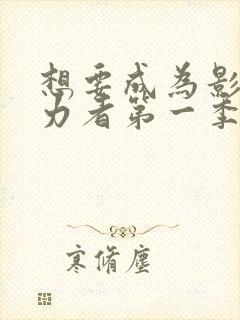 想要成为影
力者第一季
寒脩塵